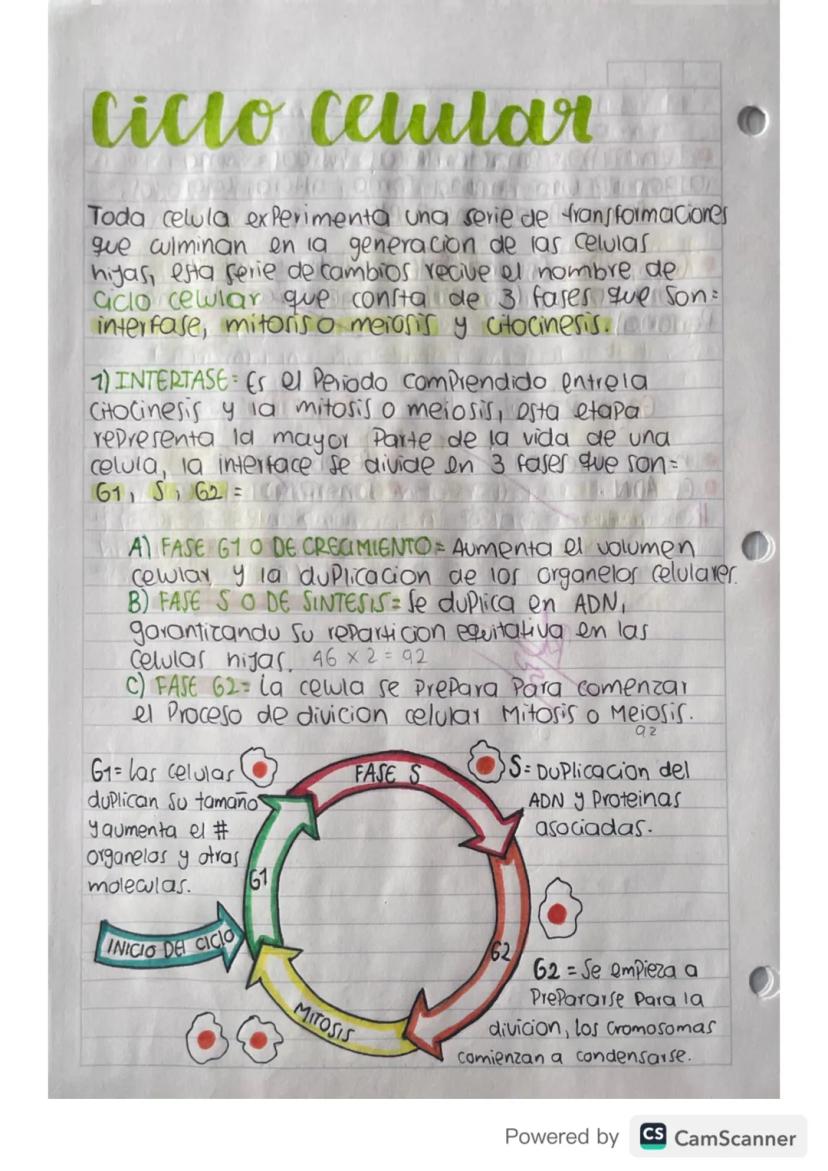 Ciclo Celular
Toda celula experimenta una serie de transformaciones
que culminan en la generacion de las celulas
hijas, esta serie de cambios recive el nombre de
ciclo celular que consta de 3 fases que son:
interfase, mitosis o meiosis y citocinesis.
1) INTERFASE: Es el Periodo comprendido entre la
citocinesis y la mitosis o meiosis, esta etapa
representa la mayor Parte de la vida de una
celula, la interface se divide en 3 fases que son=
G1, S, G2 =
A) FASE G1 O DE CRECIMIENTO= Aumenta el volumen
celular y la duplicacion de los organelos celulares.
B) FASE S O DE SINTESIS= Se duplica en ADN,
garantizando su reparticion equitativa en las
celulas hijas. 46 x 2 = 92
C) FASE G2= La celula se prepara Para comenzar
el Proceso de divicion celular Mitosis o Meiosis.
92
G1= Las celulas
duplican su tamaño
y aumenta el #
organelos y otras
moleculas.
FASE S
S= Duplicacion del
ADN y Proteinas
asociadas.
G1
INICIO DEL CICLO
G2
G2 = Se empieza a
Prepararse Para la
divicion, los cromosomas
comienzan a condensarse.
MITOSIS
Powered by CS CamScanner